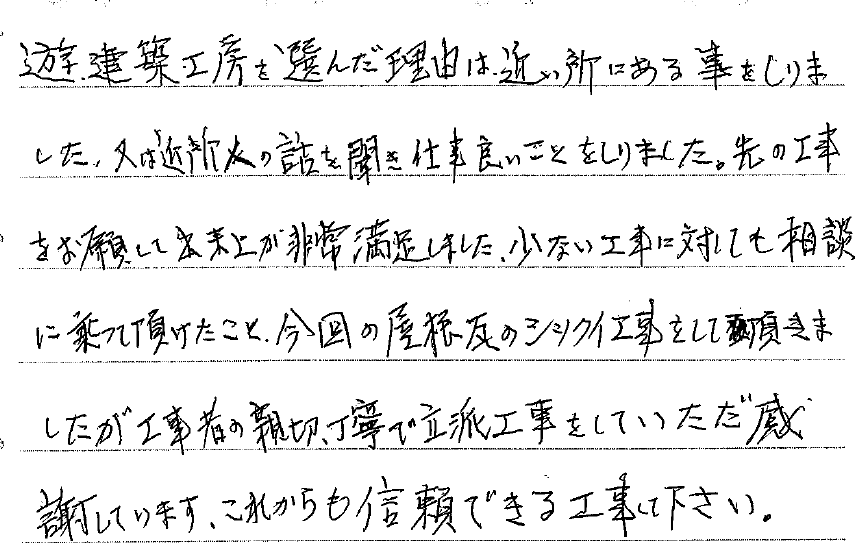 遊.建築工房を選んだ理由は、近い所にある事をしりま
した、又は近所人の話を聞き仕事良いことをしりました。先の工事
をお願して出来上が非常満足しました、少ない工事に対しても相談
に乗って頂けたこと、今回の屋根瓦のシックイ工事をして頂きま
したが工事者の親切、丁寧で立派工事をしていただ感
謝しています、これからも信頼できる工事して下さい。